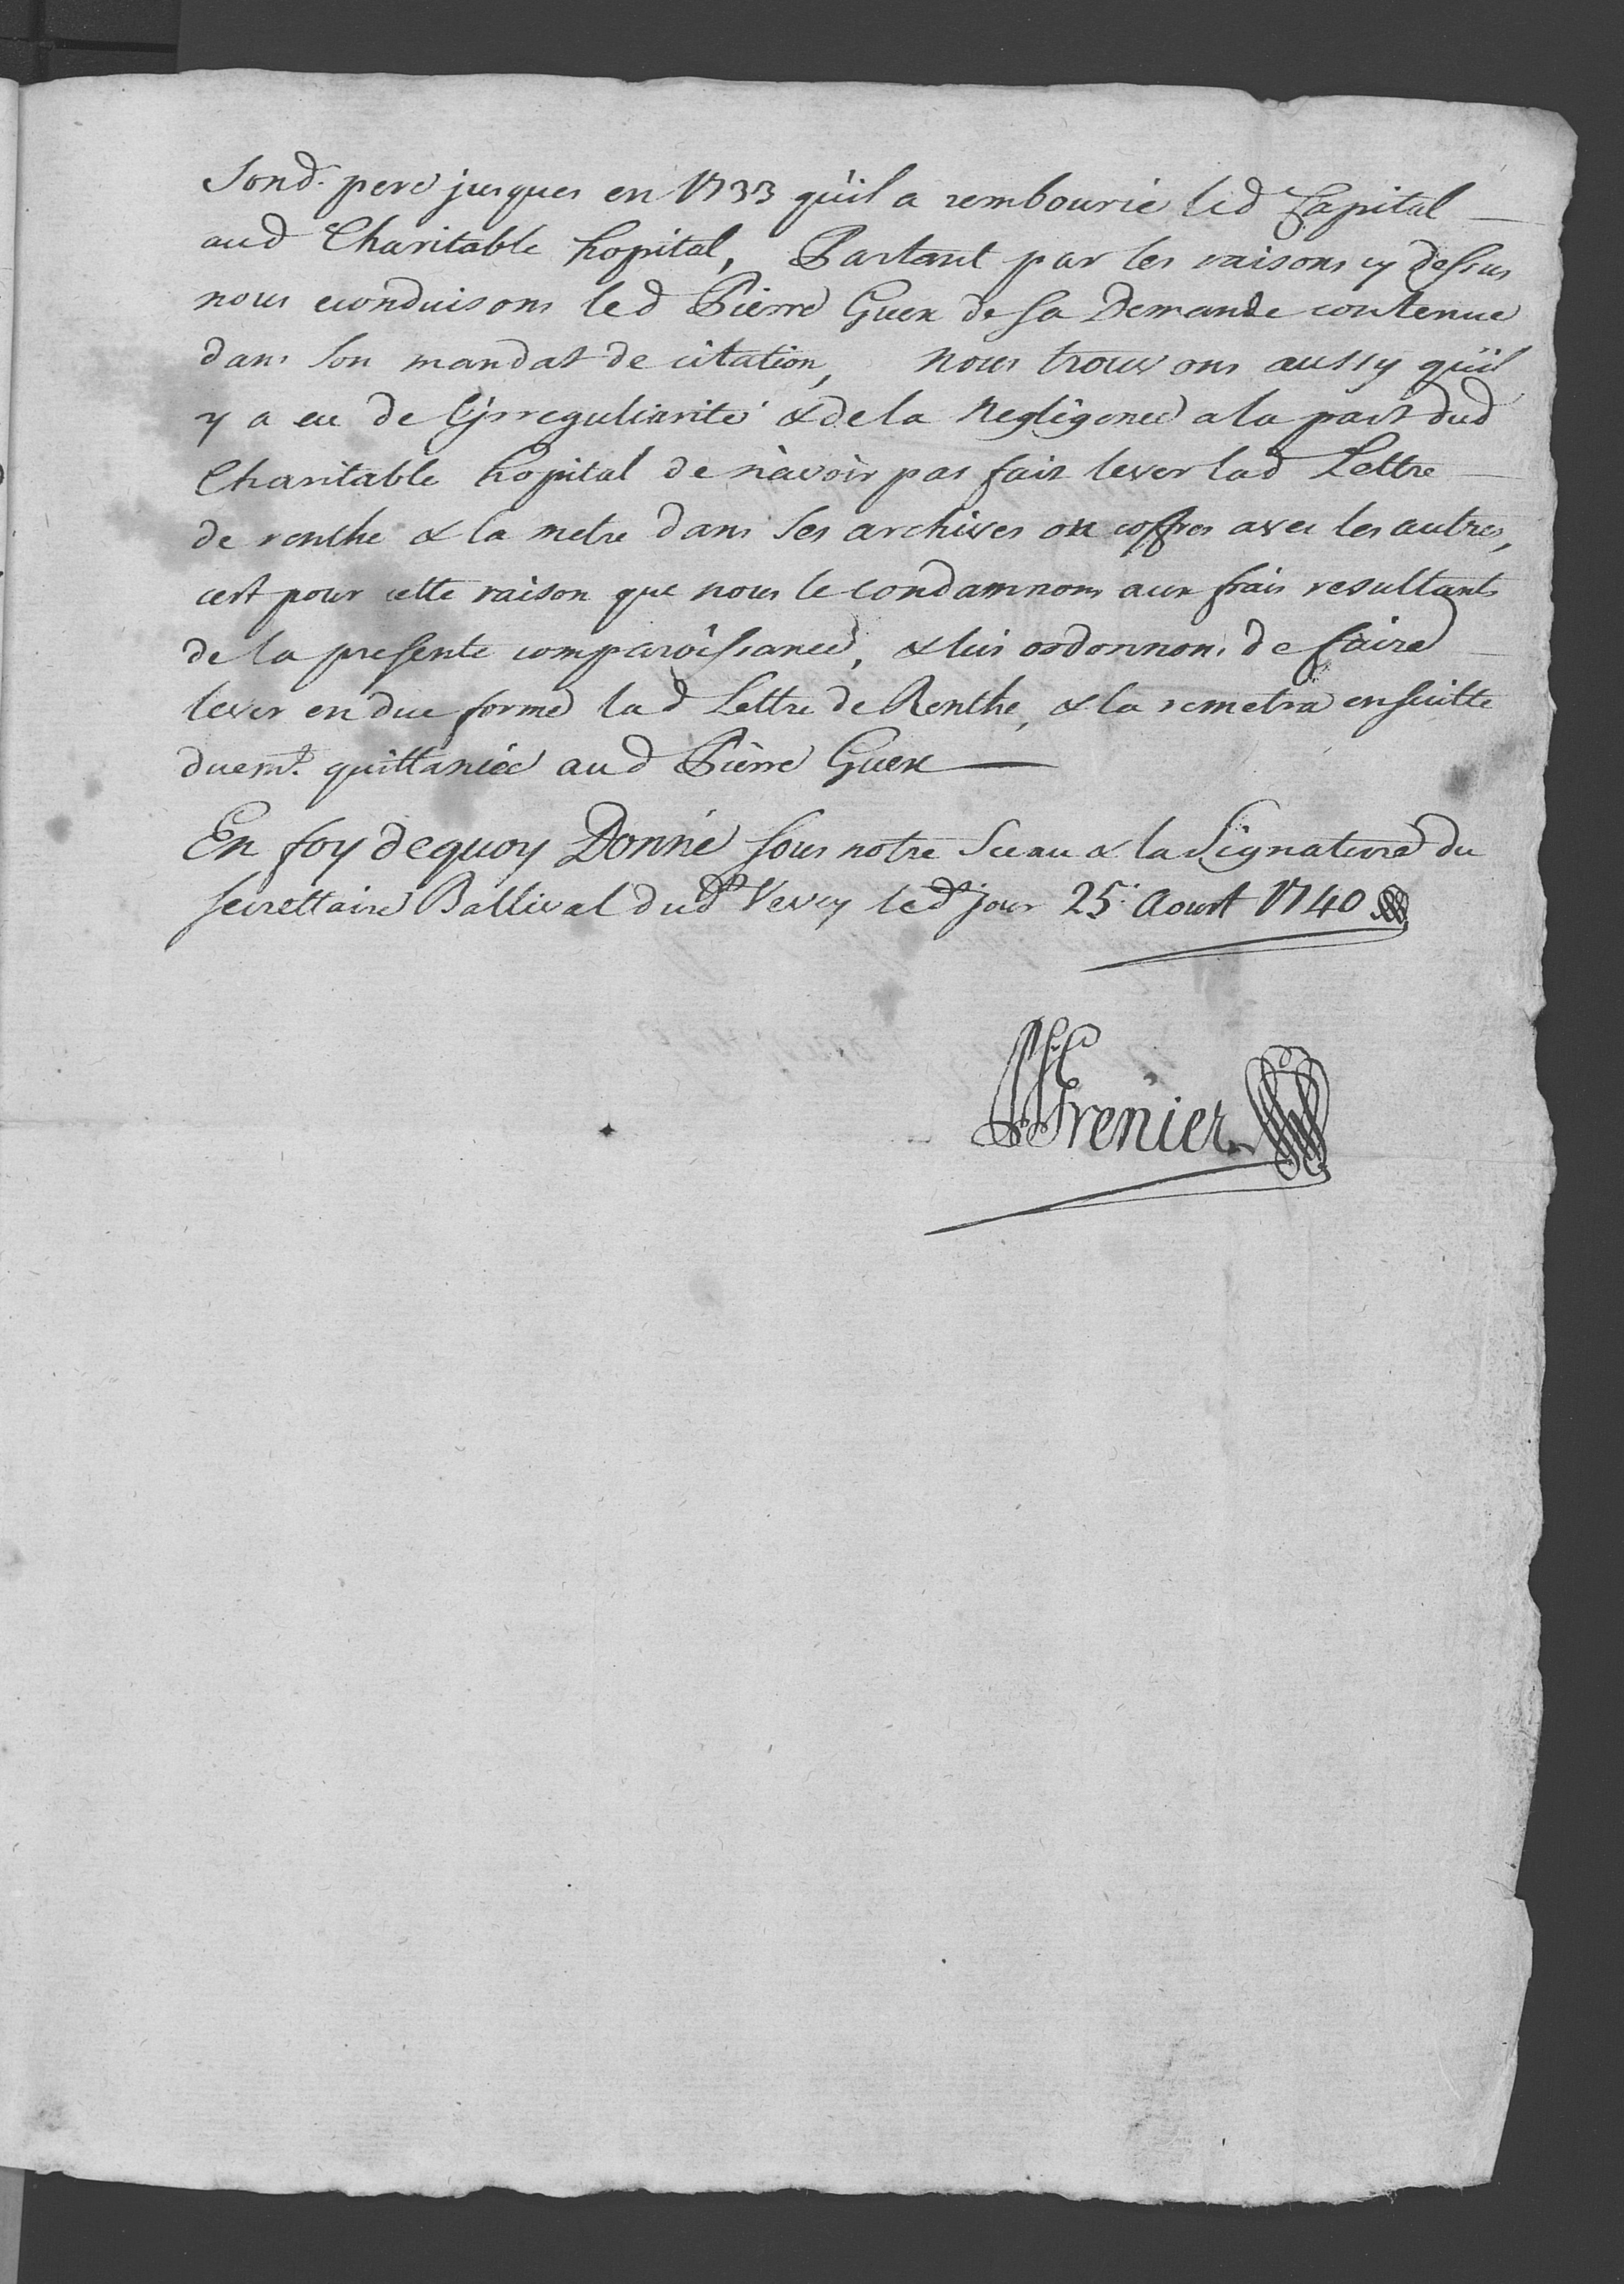 sond. pere jusques en 1733 qu'il a remboursé led Capital
aud Charitable hopital, Partant par les raisons cy dessus
nous econduisons led Pierre Guex de sa Demande contenue
dans son mandat de citation, nous trouvons aussy qu'il
y a eu de l'jrreguliarité & de la Negligence a la part dud
Charitable hopital de n'avoir pas fait lever lad Lettre
de renthe & la metre dans ses archives ou coffres avec les autres,
cest pour cette raison que nous le condamnons aux frais resultants
de la presente comparoissance, & lui ordonnons de faire
lever en due forme lad Lettre de Renthe, & la remetra ensuitte
duemt. quittancée aud Pierre Guex
En foy dequoy Donné sous notre Sceau & la Signature du
secrettaire Ballival dudt Vevey ledt jour 25. Aoust 1740
Grenier